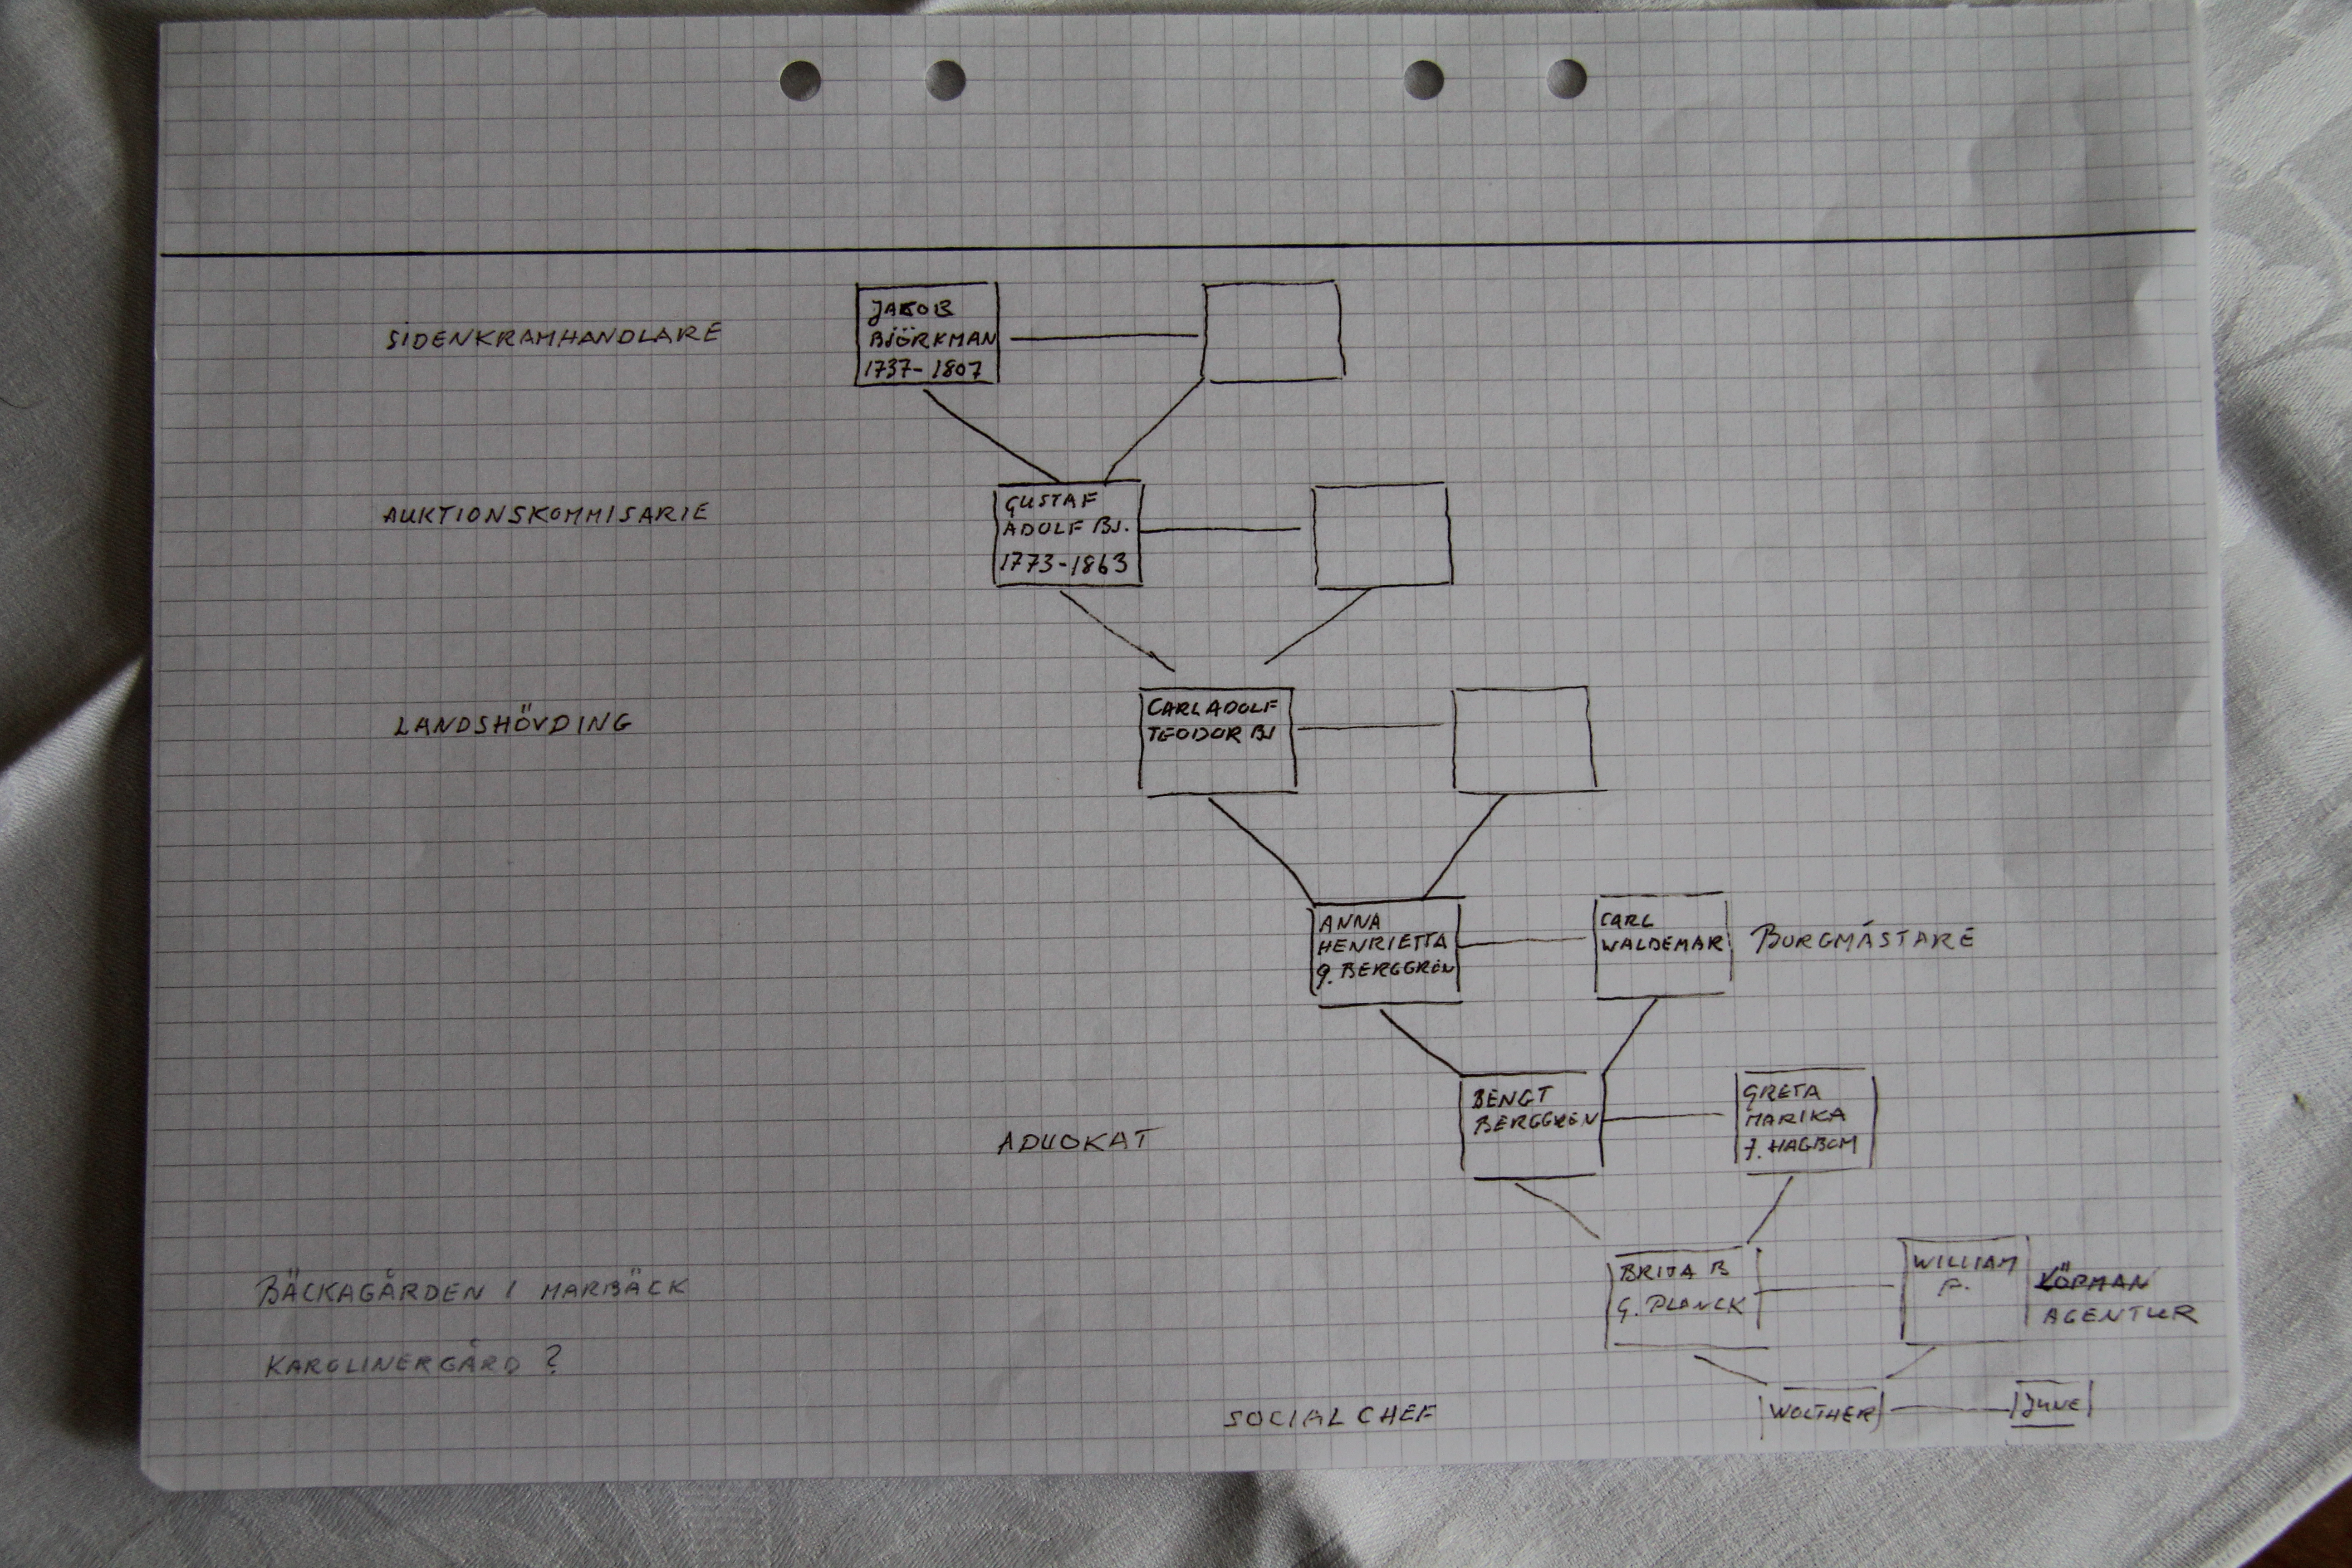 SIDENKRAMHANDLARE
JAKOB
BJÖRKMAN
1737-1807
AUKTIONSKOMMISARIE
GUSTAF
ADOLF BJ.
1773-1863
LANDSHÖVDING
CARL ADOLF
TEODOR BJ
ANNA
HENRIETTA
g. BERGGREN
CARL
WALDEMAR
BORGMÁSTARE
ADVOKAT
BENGT
BERGGREN
GRETA
MARIKA
f. HAGBOM
BÄCKAGÅRDEN I MARBÄCK
KAROLINERGÅRD ?
BRITA B
G. PLANCK
WILLIAM
F.
KÖPMAN
AGENTUR
SOCIAL CHEF
WOLTHER
JUNE